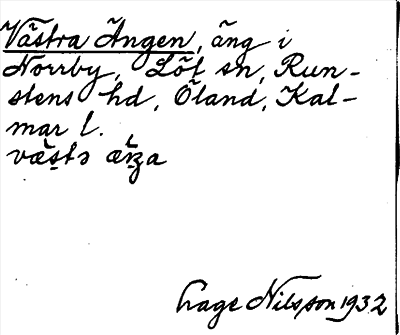 Västra Ängen, äng i
Norrby, Löt sn, Run-
stens hd, Öland, Kal-
mar l.
væstə
Hage Nilsson 1932